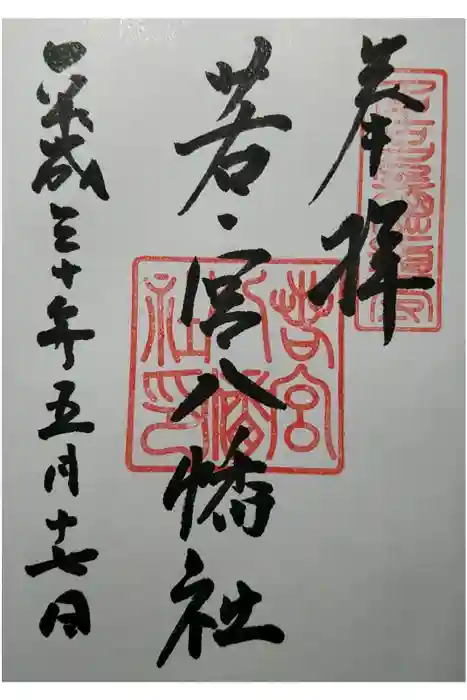 奉拝
若・宮八幡社
平成三十年五月十七日
若宮八幡社印